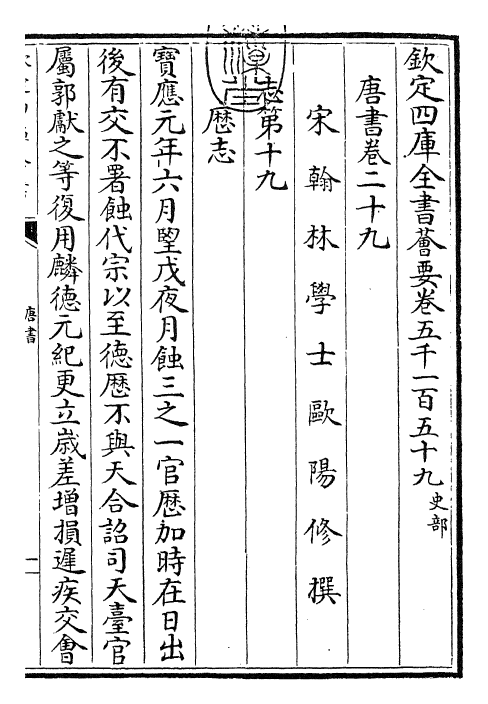 欽定四庫全書薈要卷五千一百五十九史部
唐書卷二十九
宋翰林學士歐陽修撰
志第十九
厯志
寶應元年六月望戊夜月蝕三之一官厯加時在日出
後有交不署蝕代宗以至德厯不與天合詔司天臺官
屬郭獻之等復用麟德元紀更立嵗差增損遲疾交會
唐書
一